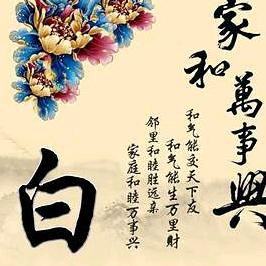 家和萬事興
和气能交天下友
和气能生万里财
邻里和睦胜远亲
家庭和睦万事兴
白